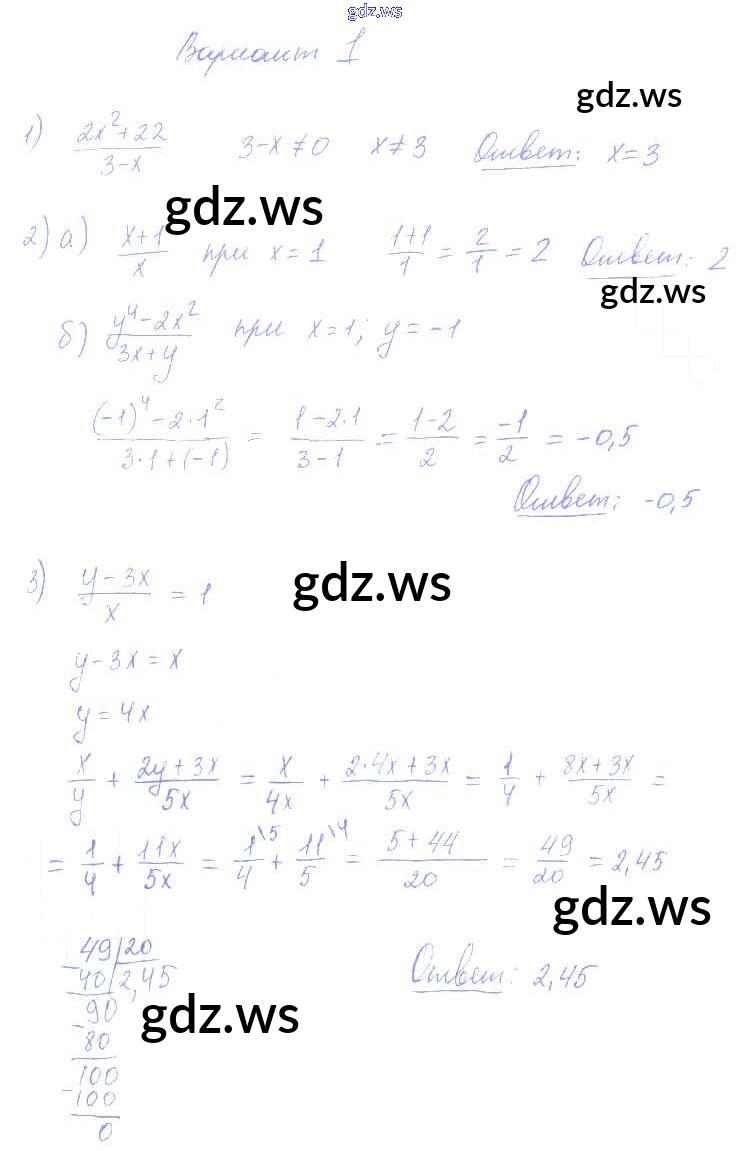 gdz.ws
Вариант 1
gdz.ws
1) (2x²+22)/(3-x) 3-x≠0 x≠3 Ответ: x=3
gdz.ws
2) а) (x+1)/x при x=1 (1+1)/1 = 2/1 = 2 Ответ: 2
gdz.ws
б) (y⁴-2x²)/(3x+y) при x=1; y=-1
((-1)⁴-2·1²)/(3·1+(-1)) = (1-2·1)/(3-1) = (1-2)/2 = -1/2 = -0,5
Ответ: -0,5
3) (y-3x)/x = 1
gdz.ws
y-3x=x
y=4x
x/y + (2y+3x)/5x = x/4x + (2·4x+3x)/5x = 1/4 + (8x+3x)/5x =
= 1/4 + 11x/5x = 1\5/4 + 11\4/5 = (5+44)/20 = 49/20 = 2,45
gdz.ws
49|20
-40|2,45
Ответ: 2,45
gdz.ws
90
-80
100
-100
0